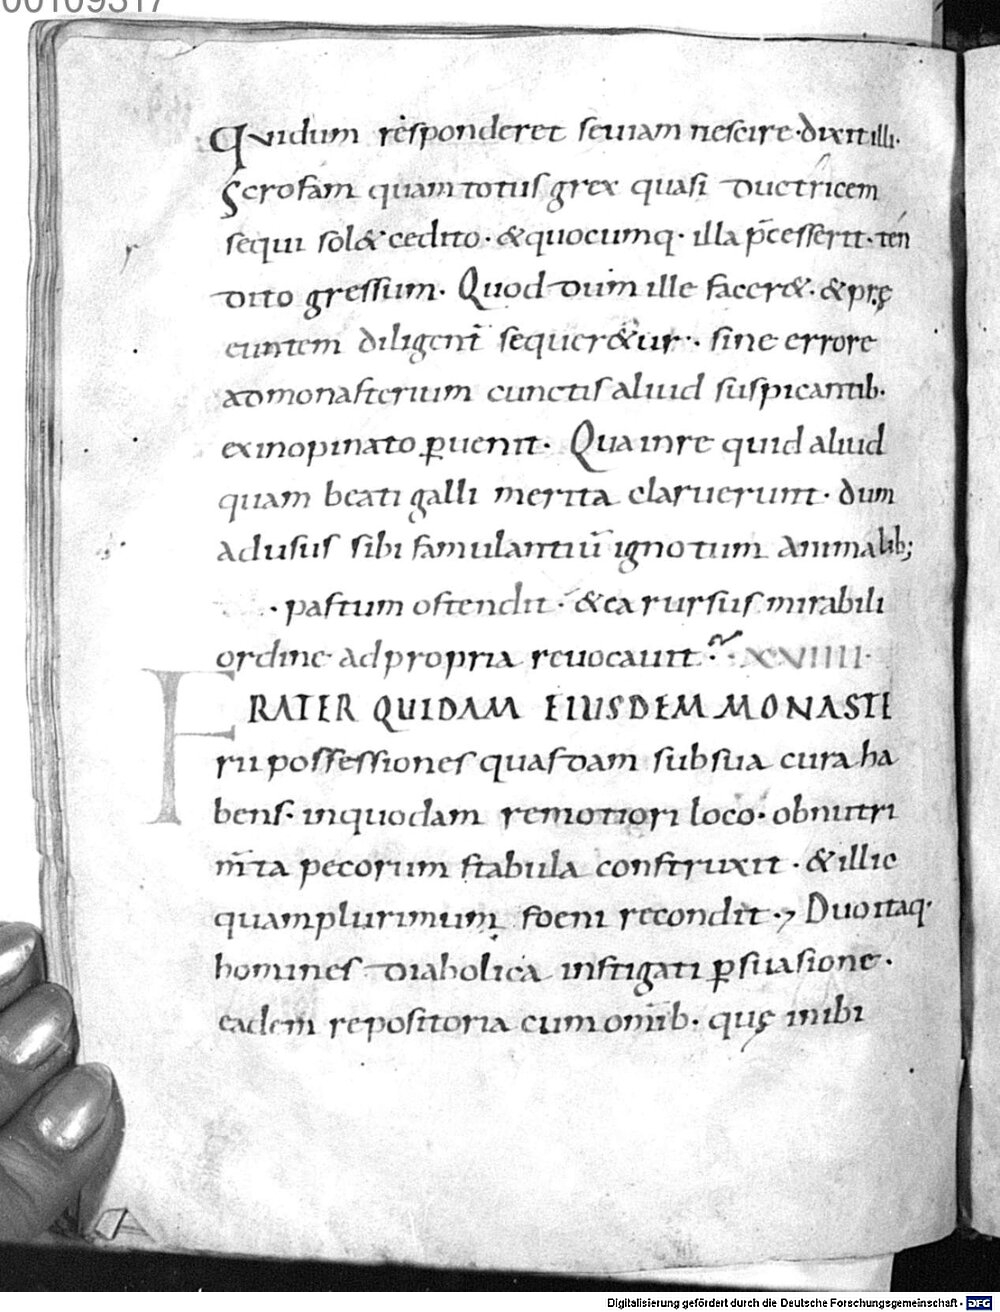 00109317
Quidum responderet se uiam nescire · dixit illi ·
Scrofam quam totus grex quasi ductricem
sequi sol& cedito · & quocumq· illa p̄cesserit · ten
dito gressum · Quod dum ille facer& · & pręeuntem
euntem diligent̄ sequer&ur · sine errore
ad monasterium cunctis aliud suspicantib·
ex inopinato ꝑuenit · Qua in re quid aliud
quam beati galli merita claruerunt · dum
ad usus sibi famulantiū ignotum animalib;
· pastum ostendit · & ea rursus mirabili
ordine ad propria reuocauit · XXVIIII ·
FRATER QUIDAM EIUSDEM MONASTE
rii possessiones quasdam sub sua cura ha
bens · in quodam remotiori loco · ob nutri
m̄ta pecorum stabula construxit · & illic
quamplurimum foeni recondit · Duo itaq·
homines diabolica instigati ꝑsuasione ·
eadem repositoria cum omīb· quę inibi
Digitalisierung gefördert durch die Deutsche Forschungsgemeinschaft - DFG